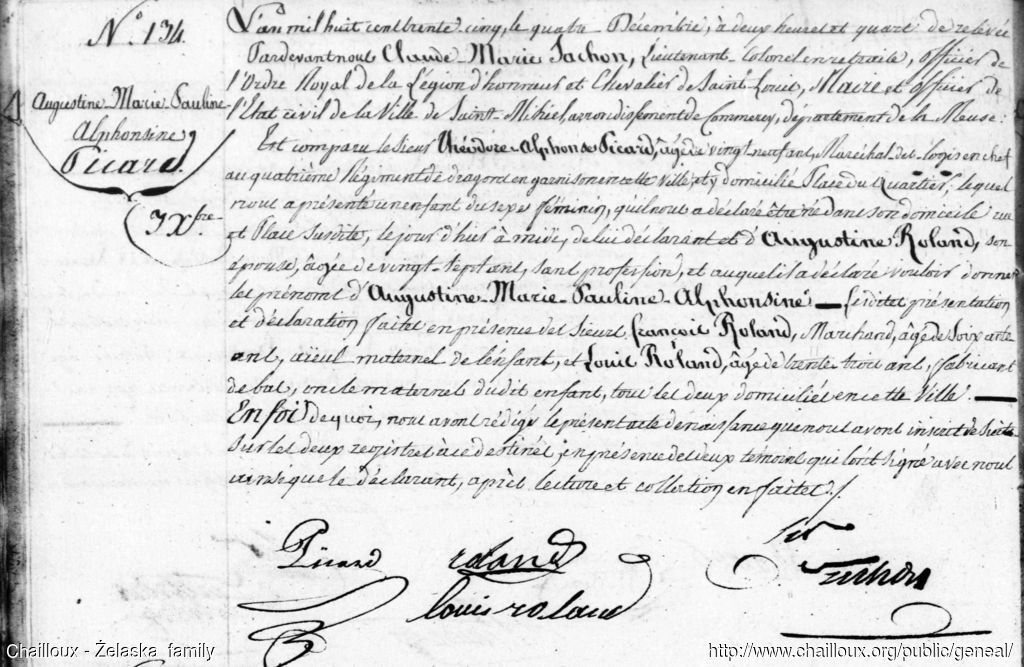 N.º 134.
Augustine-Marie-Pauline-
Alphonsine
Picard.
(3 Xbre
L'an mil huit cent trente cinq, le quatre Décembre, à deux heures et quart de relevée
Pardevant nous Claude Marie Jachon, Lieutenant-Colonel en retraite, officier de
l'Ordre Royal de la Légion d'honneur et Chevalier de Saint Louis, Maire et officier de
l'État civil de la Ville de Saint-Mihiel, arrondissement de Commercy, département de la Meuse:
Est comparu le Sieur Théodore-Alphonse Picard, âgé de vingt-neuf ans, Maréchal-des-logis en chef
au quatrième Régiment de dragons en garnison en cette Ville et y domicilié Place du Quartier, lequel
nous a présenté un enfant du sexe féminin, qu'il nous a déclaré être né dans son domicile rue
et Place susdite, le jour d'hier à midi, de lui déclarant et d'Augustine Roland, son
épouse, âgée de vingt-sept ans, sans profession, et auquel il a déclaré vouloir donner
les prénoms d'Augustine-Marie-Pauline-Alphonsine — Lesdites présentation
et déclaration faites en présence des Sieurs françois Roland, Marchand, âgé de soixante
ans, aïeul maternel de l'enfant, et Louis Roland, âgé de trente-trois ans, fabricant
de bas, oncle maternel dudit enfant, tous les deux domiciliés en cette Ville. —
En foi de quoi, nous avons rédigé le présent acte de naissance que nous avons inscrit de suite
sur les deux registres à ce destinés, en présence des deux témoins qui l'ont signé avec nous
ainsi que le déclarant, après lecture et collation en faites./.
Picard roland
louis roland
Chailloux - Żelaska family http://www.chailloux.org/public/geneal/